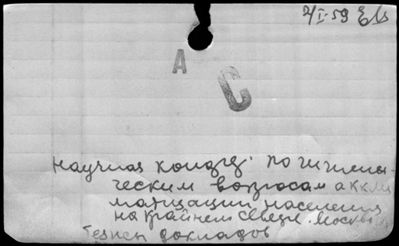 2/I-59
А
С
Научная конфер. по гигиени-
ческим вопросам аккли
матизации населения
на крайнем севере. Москва
Тезисы докладов